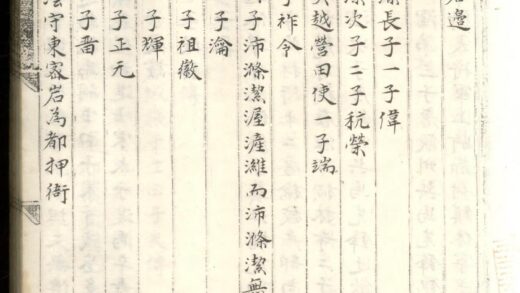 邊
長子一子偉
次子二子秔榮
越營田使一子端
子祚令
子沛滌潔渥滻濰而沛滌潔無
子瀹
子祖徽
子輝
子正元
子善
守東密岩為都押衙